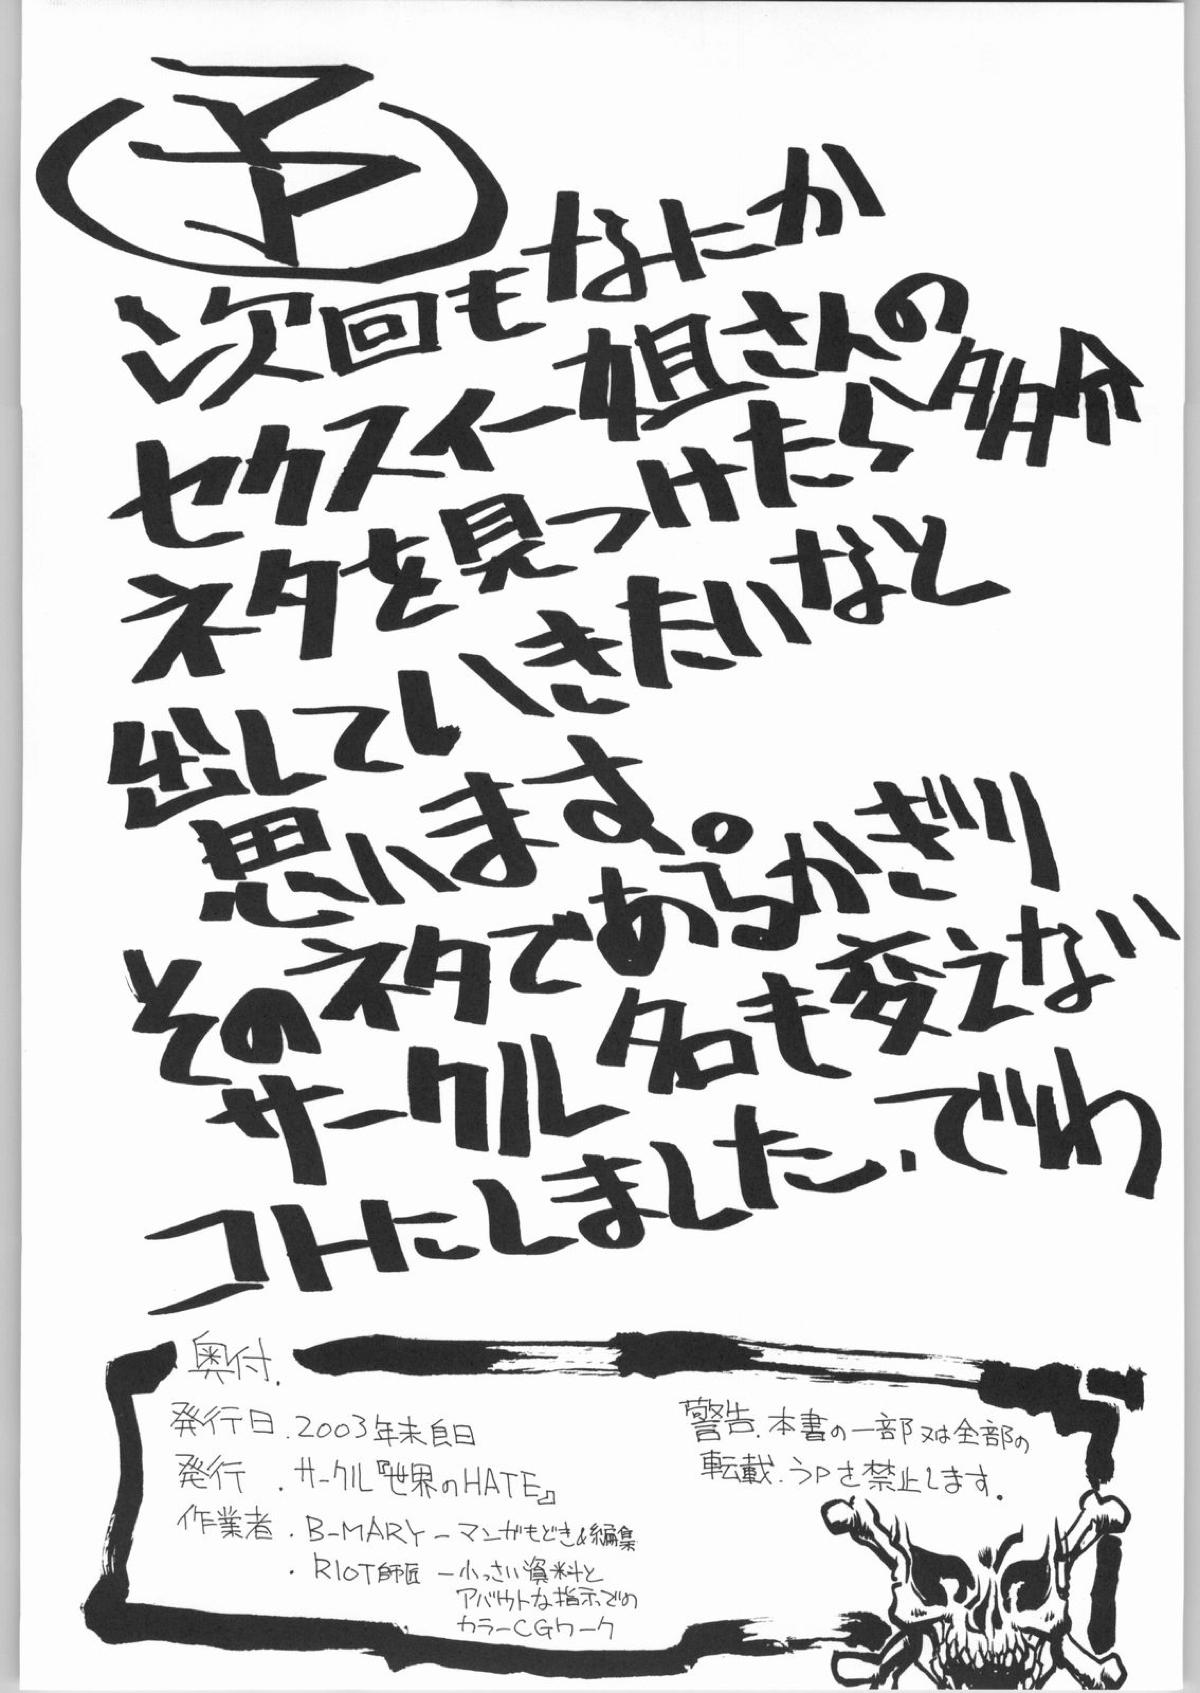 予
次回もなにか
セクスィー姐さんの多分
ネタを見つけたら
出していきたいなと
思います。
そのネタであるかぎり
サークル名も変えない
コトにしました.でわ
奥付.
発行日.2003年末自日
発行.サークル『世界のHATE』
作業者.B-MARY-マンガもどき&編集
.RIOT師匠-小っさい資料と
アバウトな指示での
カラーCGワーク
警告.本書の一部又は全部の
転載.うPを禁止します.